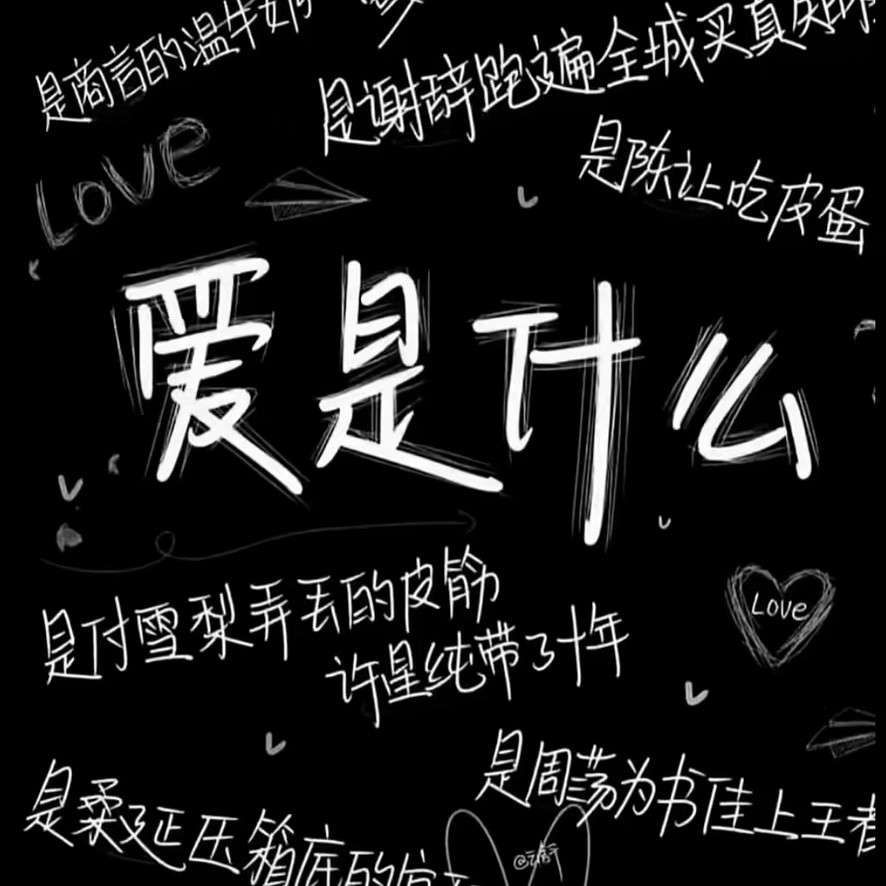 是商言的温牛奶
是谢辞跑遍全城买
是陈让吃皮蛋
Love
爱是什么
Love
是付雪梨弄丢的皮筋
许星纯带了十年
是周荡为书佳上王者
是柔延压箱底的